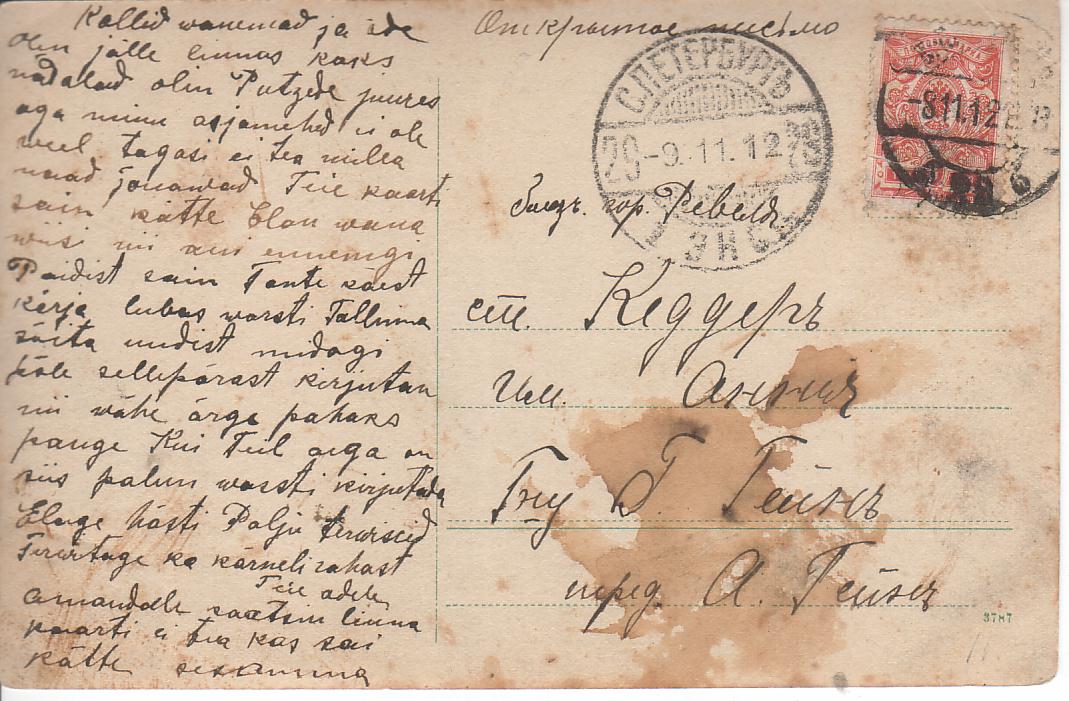 Kallid wanemad ja õde
olin jälle linnas kaks
nädalad olin Putzede juures
aga minu asjamehed ei ole
weel tagasi ei tea milla
nad jõuawad Teie kaarti
sain kätte Elan wana
wiisi nii kui ennemgi
Paidist sain Tante käest
kirja lubas warsti Tallinna
sõita uudist midagi
pole sellepärast kirjutan
nii wähe ärge pahaks
pange Kui Teil aega on
siis palun warsti kirjutada
Elage hästi Palju terwiseid
Terwitage ka kärneli rahast
Teie Adele
Amandale saatsin linna
kaarti ei tea kas sai
kätte
Открытое письмо
С.ПЕТЕРБУРГЪ
-9.11.12
-8.11.12
кор. Ревель
ст. Кеддеръ
Им. Аннія
Гну Г Гейнъ
перед. А. Гейнъ
3787